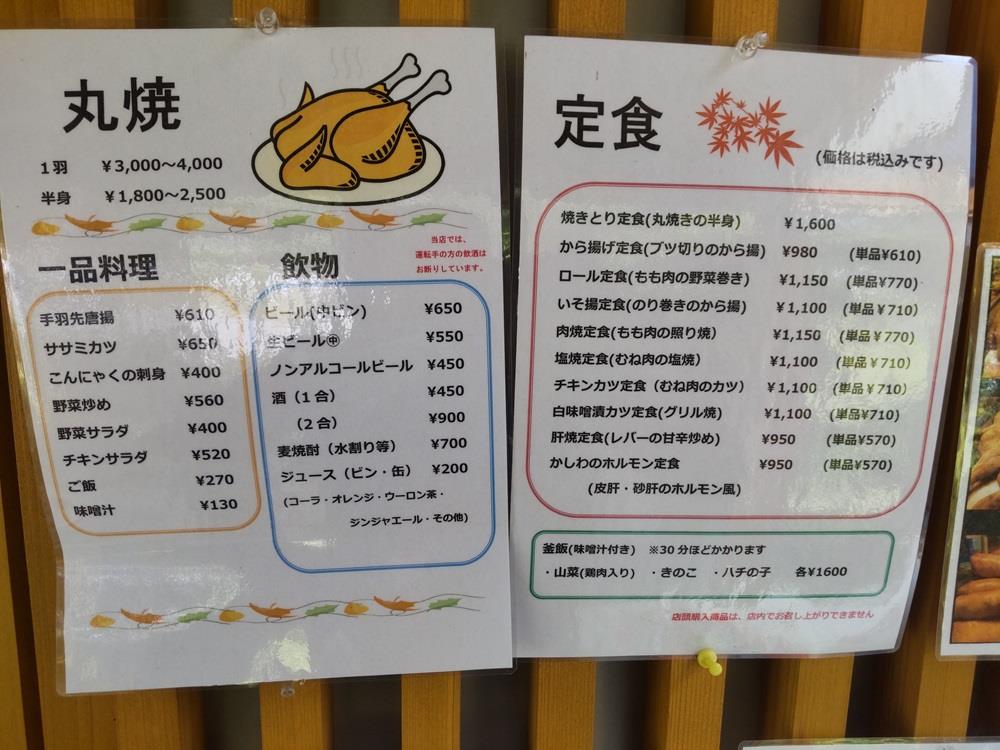 丸焼
1羽 ¥3,000～4,000
半身 ¥1,800～2,500
当店では、
運転手の方の飲酒は
お断りしています。
一品料理
手羽先唐揚 ¥610
ササミカツ ¥650
こんにゃくの刺身 ¥400
野菜炒め ¥560
野菜サラダ ¥400
チキンサラダ ¥520
ご飯 ¥270
味噌汁 ¥130
飲物
ビール(中ビン) ¥650
生ビール㊥ ¥550
ノンアルコールビール ¥450
酒（1合） ¥450
（2合） ¥900
麦焼酎（水割り等） ¥700
ジュース（ビン・缶） ¥200
(コーラ・オレンジ・ウーロン茶・
ジンジャエール・その他)
定食
(価格は税込みです)
焼きとり定食(丸焼きの半身) ¥1,600
から揚げ定食(ブツ切りのから揚) ¥980 (単品¥610)
ロール定食(もも肉の野菜巻き) ¥1,150 (単品¥770)
いそ揚定食(のり巻きのから揚) ¥1,100 (単品¥710)
肉焼定食(もも肉の照り焼) ¥1,150 (単品¥770)
塩焼定食(むね肉の塩焼) ¥1,100 (単品¥710)
チキンカツ定食（むね肉のカツ） ¥1,100 (単品¥710)
白味噌漬カツ定食(グリル焼) ¥1,100 (単品¥710)
肝焼定食(レバーの甘辛炒め) ¥950 (単品¥570)
かしわのホルモン定食 ¥950 (単品¥570)
(皮肝・砂肝のホルモン風)
釜飯(味噌汁付き) ※30分ほどかかります
・山菜(鶏肉入り) ・きのこ ・ハチの子 各¥1600
店頭購入商品は、店内でお召し上がりできません